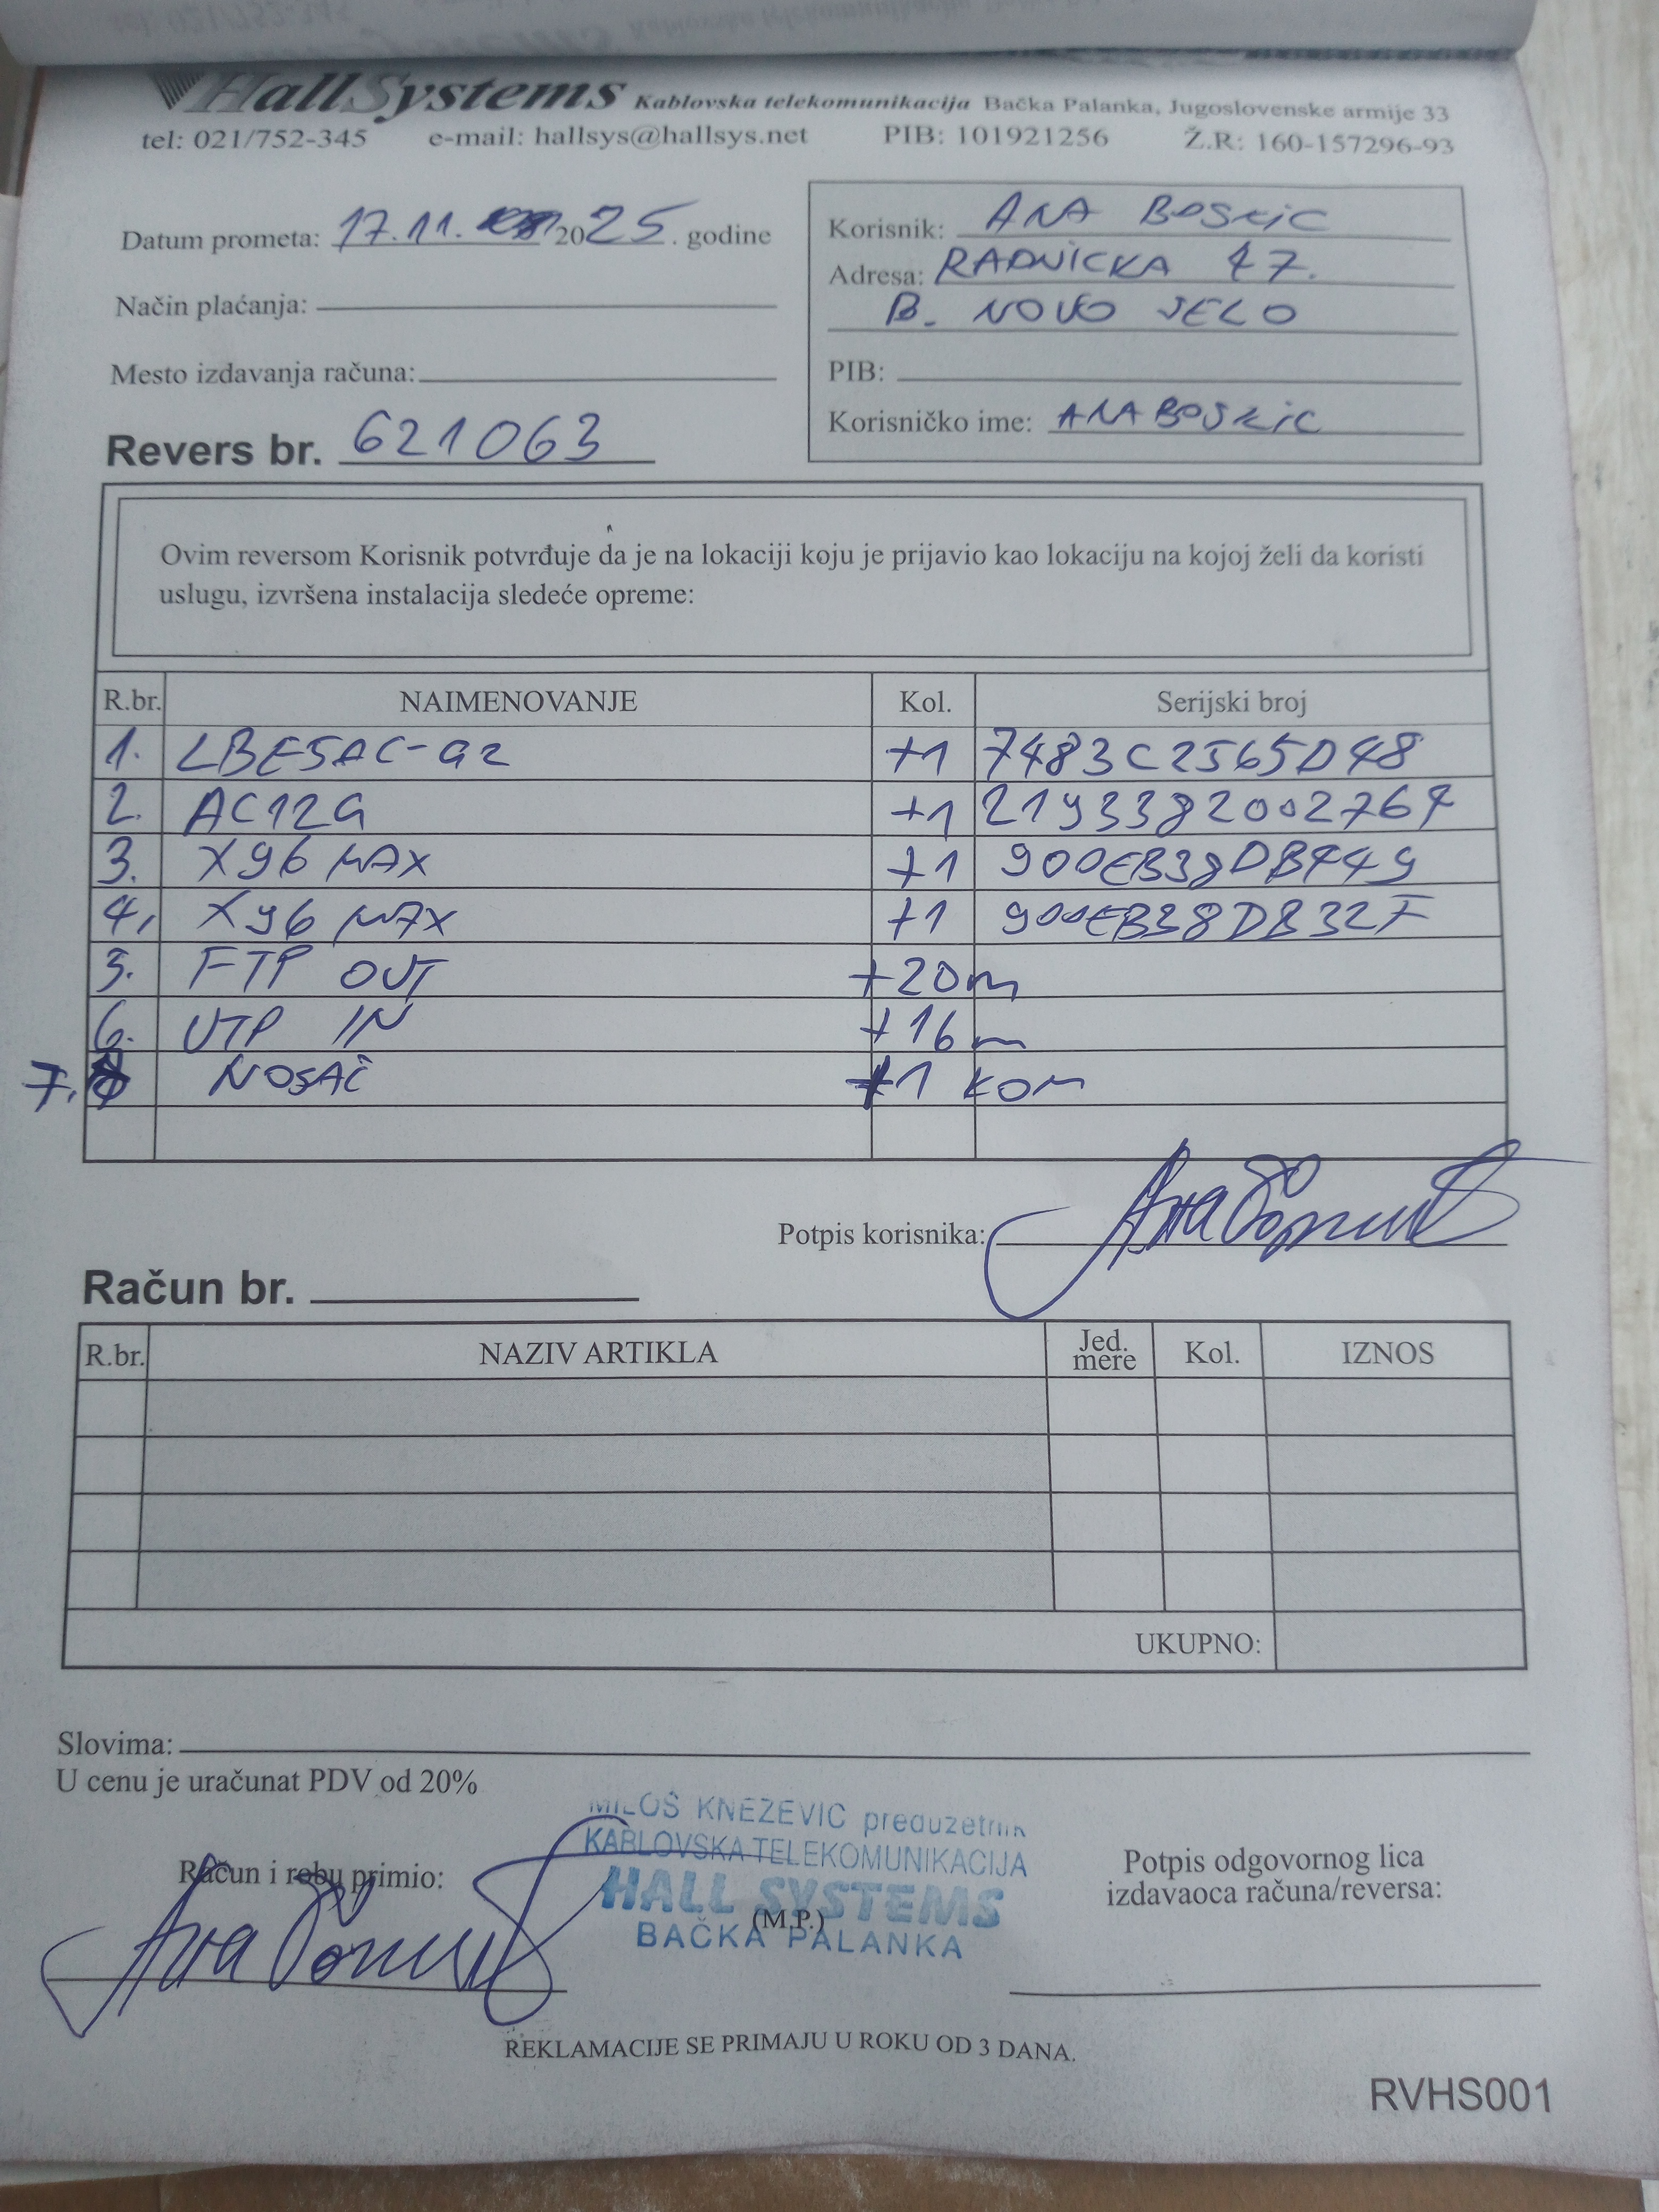 HallSystems Kablovska telekomunikacija Bačka Palanka, Jugoslovenske armije 33
tel: 021/752-345 e-mail: hallsys@hallsys.net PIB: 101921256 Ž.R: 160-157296-93
Datum prometa: 17.11. 2025. godine
Način plaćanja:
Mesto izdavanja računa:
Revers br. 621063
Korisnik: ANA BOSKIC
Adresa: RADNICKA 47.
B. NOVO SELO
PIB:
Korisničko ime: ANABOSKIC
Ovim reversom Korisnik potvrđuje da je na lokaciji koju je prijavio kao lokaciju na kojoj želi da koristi
uslugu, izvršena instalacija sledeće opreme:
R.br. NAIMENOVANJE Kol. Serijski broj
1. LBE5AC-G2 +1 7483C2565D48
2. AC12G +1 2193382002764
3. X96 MAX +1 900EB38DB449
4. X96 MAX +1 900EB38DB32F
5. FTP OUT +20m
6. UTP IN +16m
7. NOSAČ +1 KOM
Potpis korisnika:
Račun br.
R.br. NAZIV ARTIKLA Jed. mere Kol. IZNOS
UKUPNO:
Slovima:
U cenu je uračunat PDV od 20%
MILOŠ KNEZEVIC preduzetnik
KABLOVSKA TELEKOMUNIKACIJA
HALL SYSTEMS
BAČKA PALANKA
Račun i robu primio:
(M.P.)
Potpis odgovornog lica
izdavaoca računa/reversa:
REKLAMACIJE SE PRIMAJU U ROKU OD 3 DANA.
RVHS001